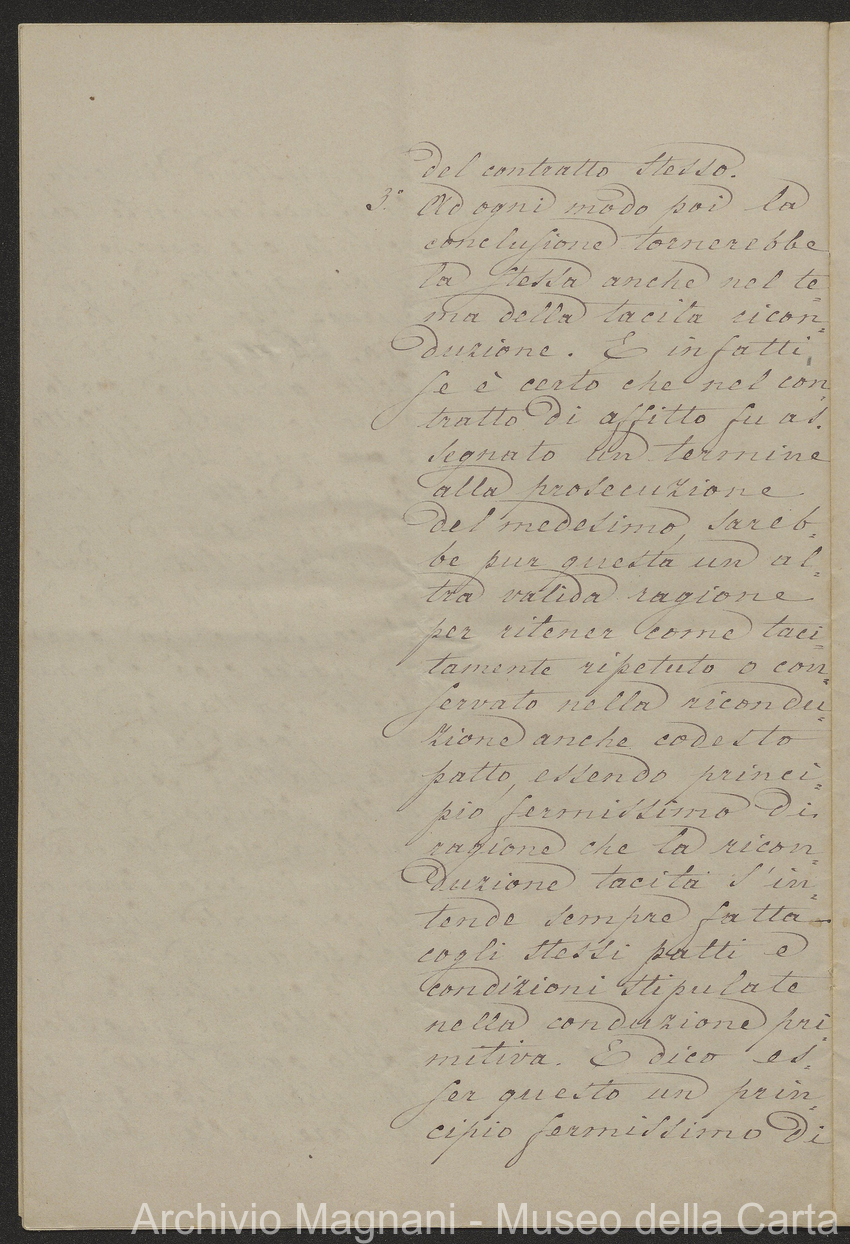 del contratto stesso.
3.° Ad ogni modo poi la
conclusione tornerebbe
la stessa anche nel te-
ma della tacita ricon-
duzione. E infatti,
se è certo che nel con-
tratto di affitto fu as-
segnato un termine
alla prosecuzione
del medesimo, sareb-
be pur questa un al-
tra valida ragione
per ritener come taci-
tamente ripetuto o con-
servato nella ricondu-
zione anche codesto
patto, essendo princi-
pio fermissimo di
ragione che la ricon-
duzione tacita s'in-
tende sempre fatta
cogli stessi patti e
condizioni stipulate
nella conduzione pri
mitiva. E dico es-
ser questo un prin-
cipio fermissimo di
Archivio Magnani - Museo della Carta